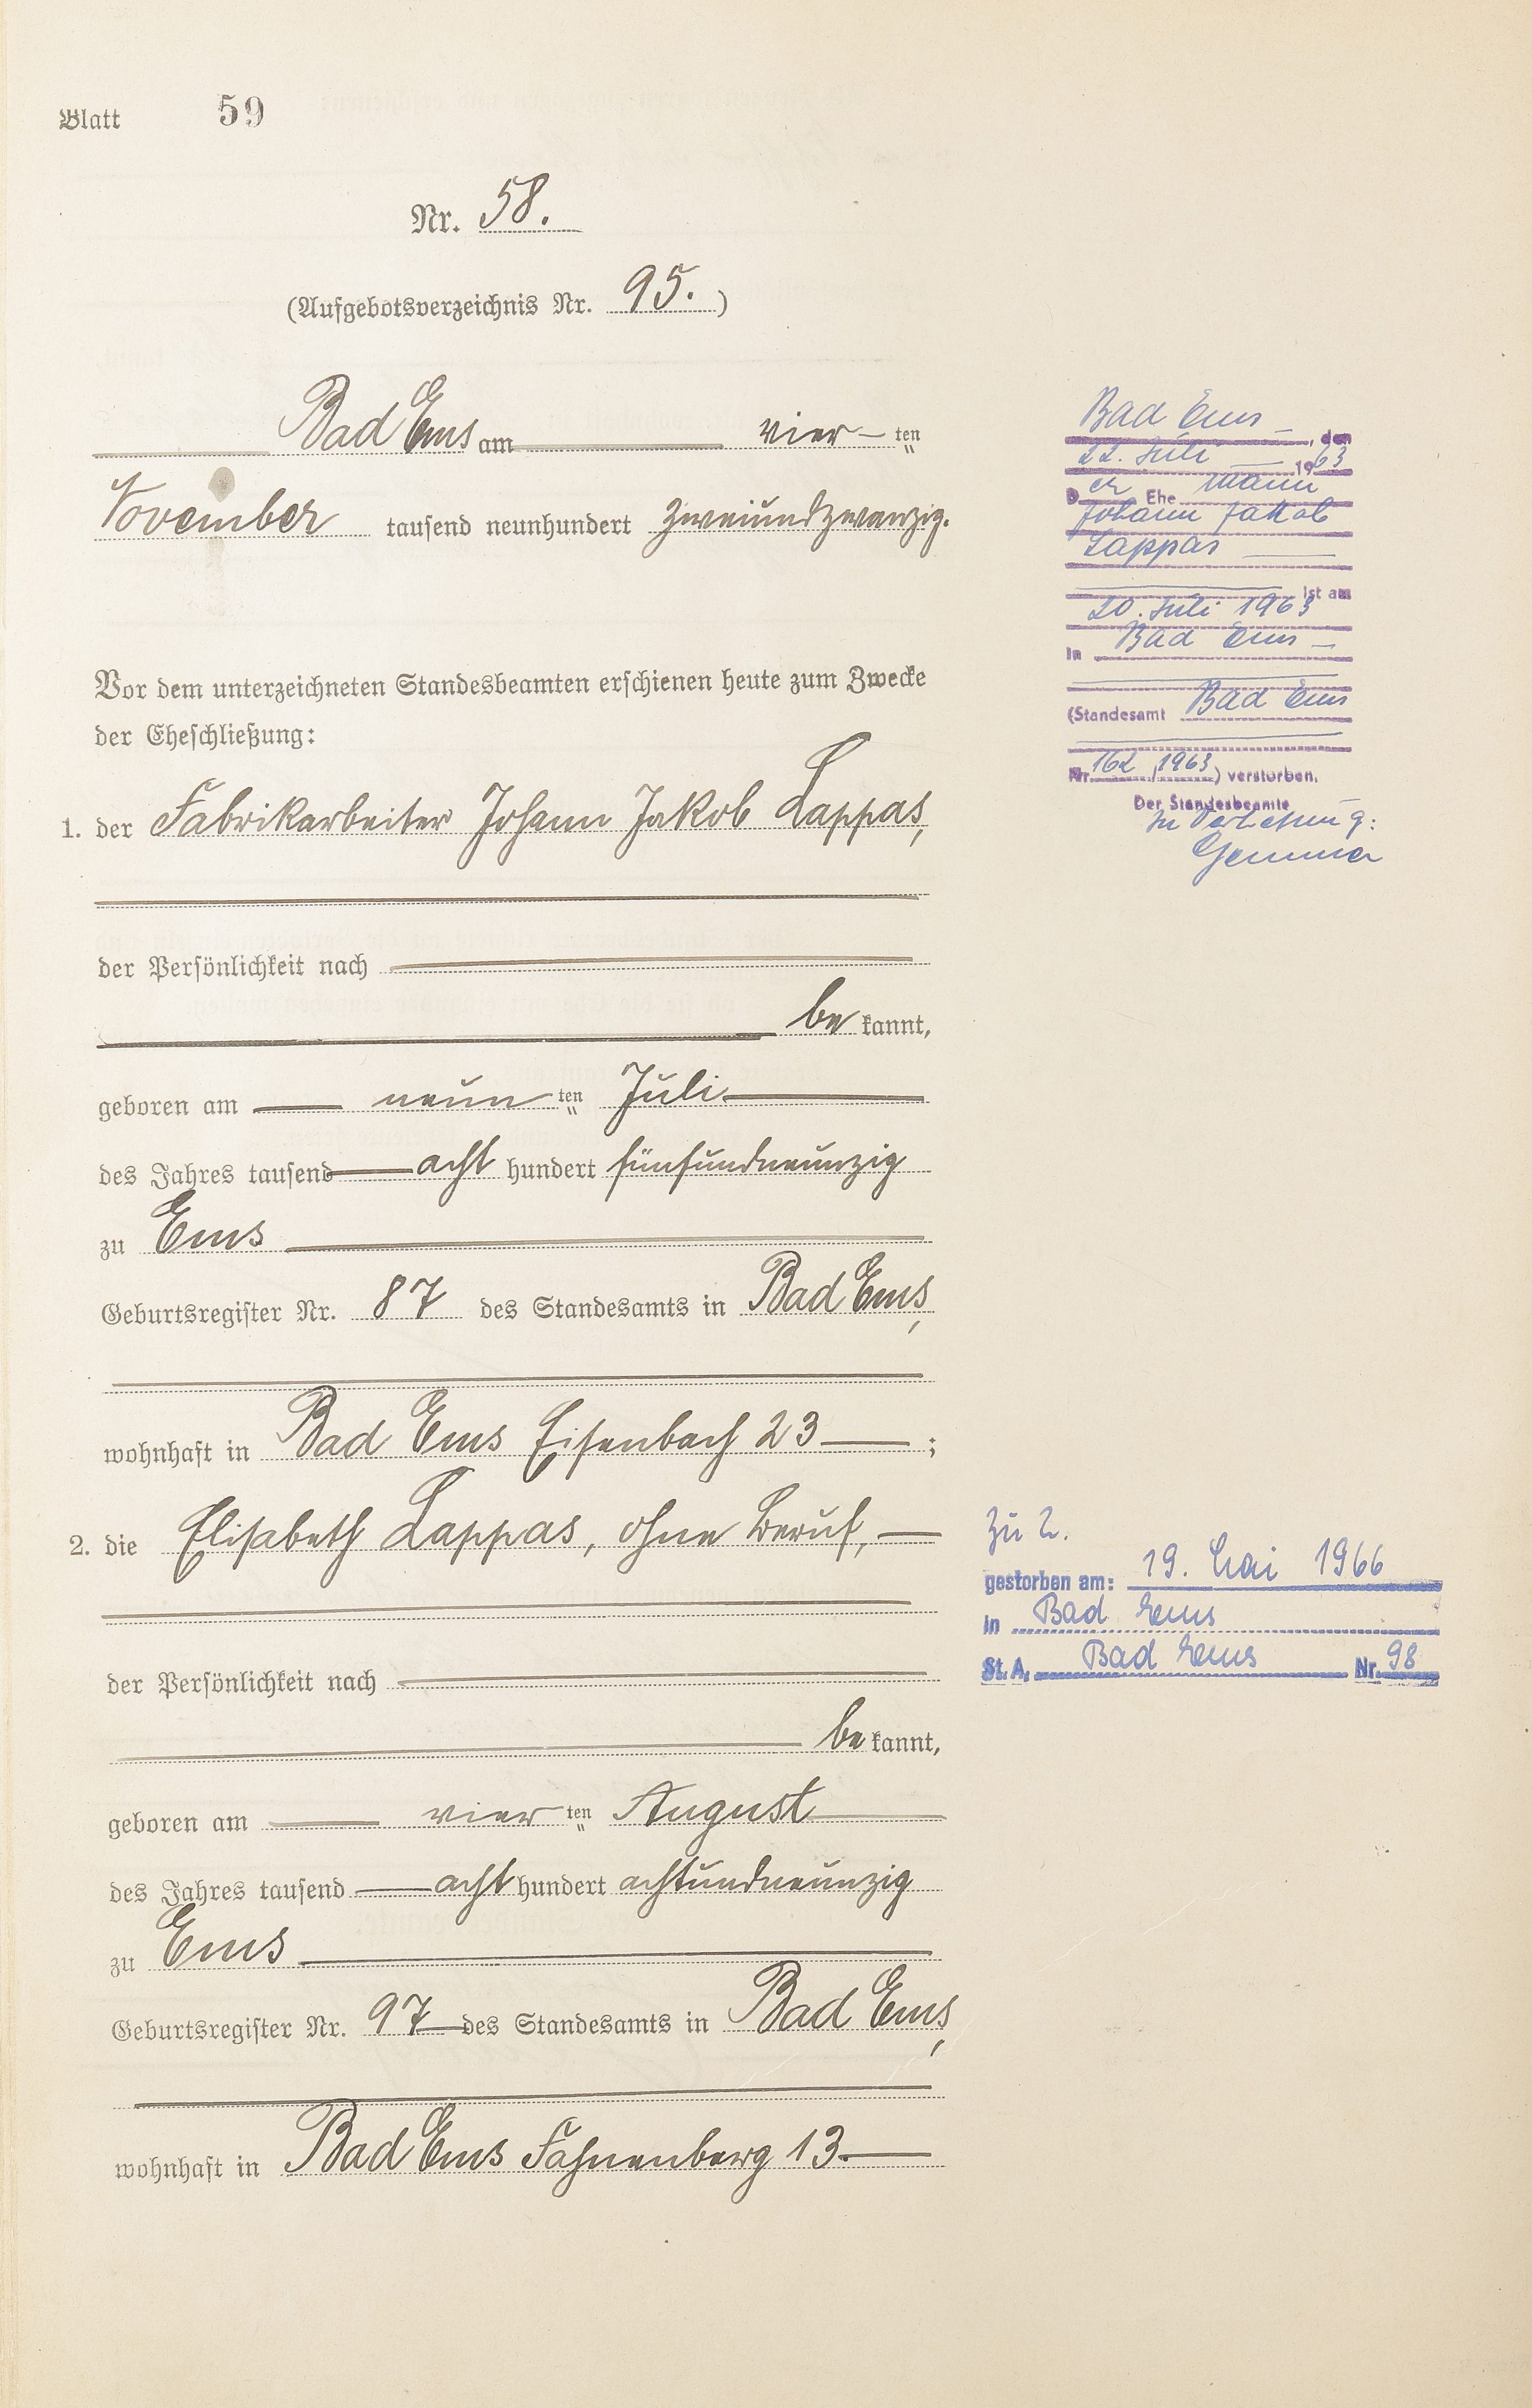 Blatt 59
Nr. 58.
(Aufgebotsverzeichnis Nr. 95.)
Bad Ems am vier- ten
November tausend neunhundert zweiundzwanzig.
Vor dem unterzeichneten Standesbeamten erschienen heute zum Zwecke
der Eheschließung:
1. der Fabrikarbeiter Johann Jakob Lappas,
der Persönlichkeit nach
be kannt,
geboren am neun ten Juli
des Jahres tausend acht hundert fünfundneunzig
zu Ems
Geburtsregister Nr. 87 des Standesamts in Bad Ems,
wohnhaft in Bad Ems Eisenbach 23 ;
2. die Elisabeth Lappas, ohne Beruf,
der Persönlichkeit nach
be kannt,
geboren am vier ten August
des Jahres tausend acht hundert achtundneunzig
zu Ems
Geburtsregister Nr. 97 des Standesamts in Bad Ems,
wohnhaft in Bad Ems Fahnenberg 13
Bad Ems , den
22. Juli 1963
D er Ehe mann
Johann Jakob
Lappas
ist am
20. Juli 1963
in Bad Ems
(Standesamt Bad Ems
Nr. 162 / 1963) verstorben.
Der Standesbeamte
In Vertretung:
Zu 2.
gestorben am: 19. Mai 1966
in Bad Ems
St. A. Bad Ems Nr. 98